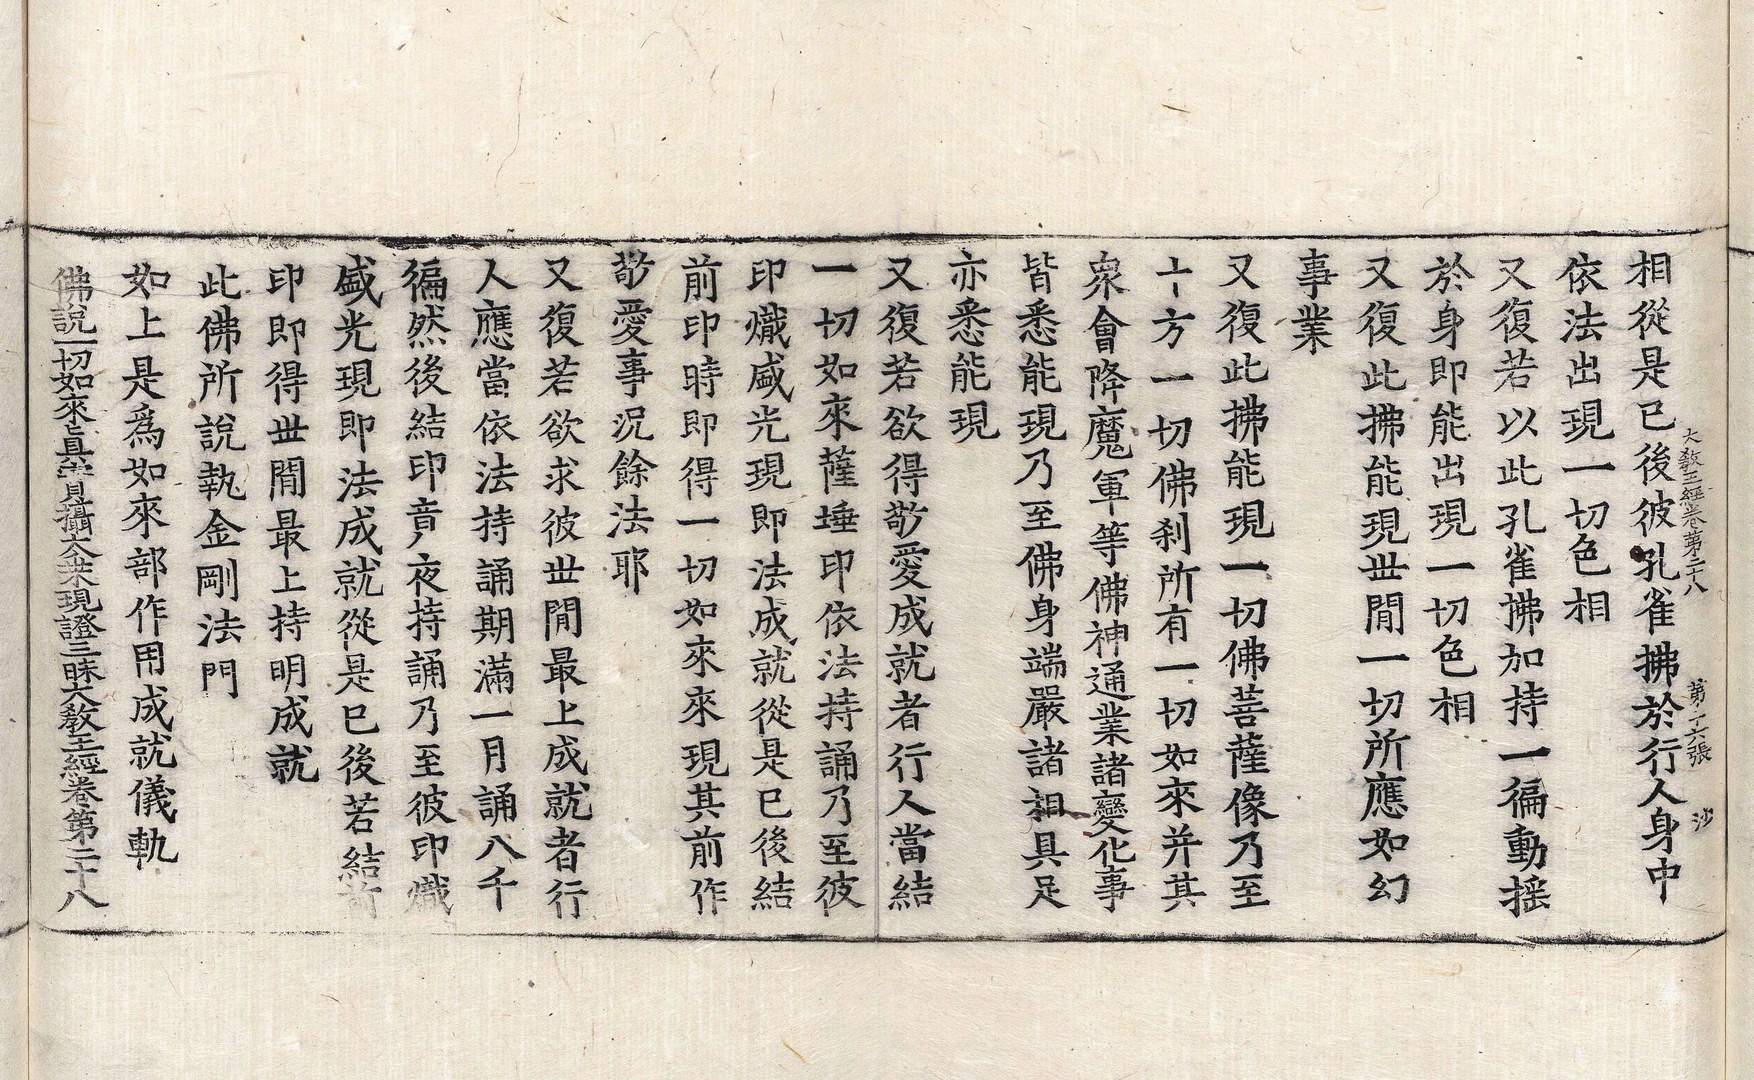 大教王經卷第二十八 第十六張 沙
相從是已後彼孔雀拂於行人身中
依法出現一切色相
又復若以此孔雀拂加持一徧動摇
於身即能出現一切色相
又復此拂能現世閒一切所應如幻
事業
又復此拂能現一切佛菩薩像乃至
十方一切佛刹所有一切如來并其
衆會降魔軍等佛神通業諸變化事
皆悉能現乃至佛身端嚴諸相具足
亦悉能現
又復若欲得敬愛成就者行人當結
一切如來薩埵印依法持誦乃至彼
印熾盛光現即法成就從是已後結
前印時即得一切如來來現其前作
敬愛事況餘法耶
又復若欲求彼世閒最上成就者行
人應當依法持誦期滿一月誦八千
徧然後結印竟夜持誦乃至彼印熾
盛光現即法成就從是已後若結前
印即得世閒最上持明成就
此佛所說執金剛法門
如上是爲如來部作用成就儀軌
佛說一切如來真實攝大乘現證三昧大教王經卷第二十八